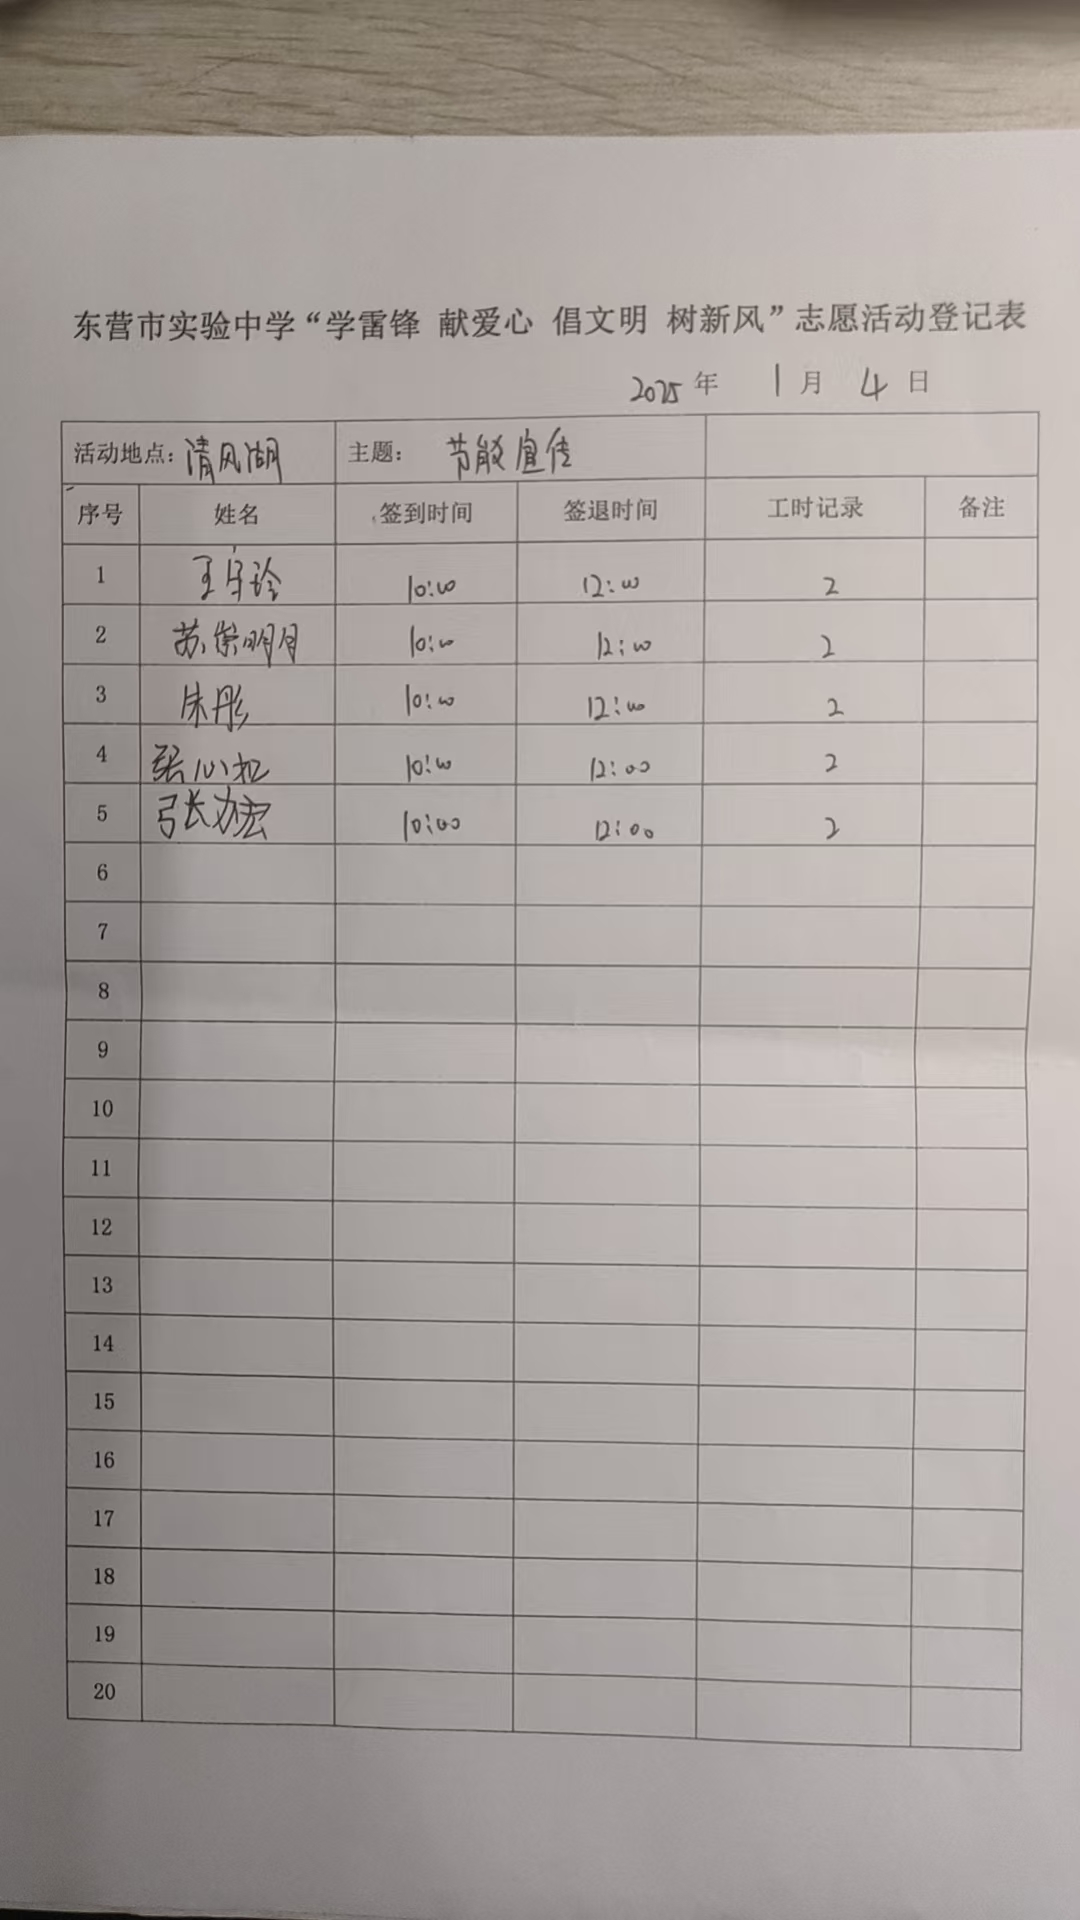 东营市实验中学“学雷锋 献爱心 倡文明 树新风”志愿活动登记表
2025年 1月 4日
活动地点：清风湖 主题： 节能宣传
序号 姓名 签到时间 签退时间 工时记录 备注
1 王宇玲 10:00 12:00 2
2 苏崇明月 10:00 12:00 2
3 朱彤 10:00 12:00 2
4 张心 10:00 12:00 2
5 张办宏 10:00 12:00 2
6
7
8
9
10
11
12
13
14
15
16
17
18
19
20